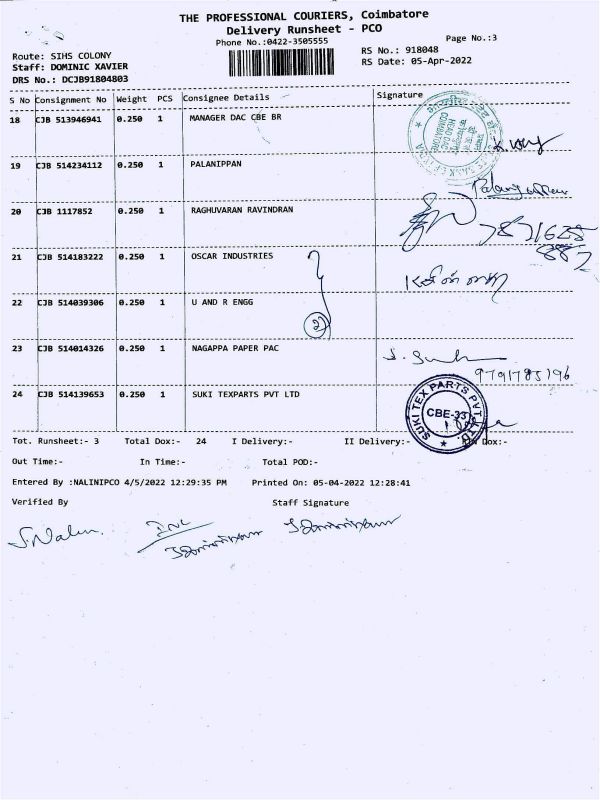 THE PROFESSIONAL COURIERS, Coimbatore
Delivery Runsheet - PCO
Phone No.:0422-3505555
Page No.:3
Route: SIHS COLONY
RS No.: 918048
Staff: DOMINIC XAVIER
RS Date: 05-Apr-2022
DRS No.: DCJB91804803
S No Consignment No Weight PCS Consignee Details Signature
18 CJB 513946941 0.250 1 MANAGER DAC CBE BR
19 CJB 514234112 0.250 1 PALANIPPAN
20 CJB 1117852 0.250 1 RAGHUVARAN RAVINDRAN
21 CJB 514183222 0.250 1 OSCAR INDUSTRIES
22 CJB 514039306 0.250 1 U AND R ENGG
2
23 CJB 514014326 0.250 1 NAGAPPA PAPER PAC
9791785196
24 CJB 514139653 0.250 1 SUKI TEXPARTS PVT LTD
SUKI TEX PARTS PVT. LTD.
CBE-33
Tot. Runsheet:- 3 Total Dox:- 24 I Delivery:- II Delivery:- Dox:-
Out Time:- In Time:- Total POD:-
Entered By :NALINIPCO 4/5/2022 12:29:35 PM Printed On: 05-04-2022 12:28:41
Verified By Staff Signature